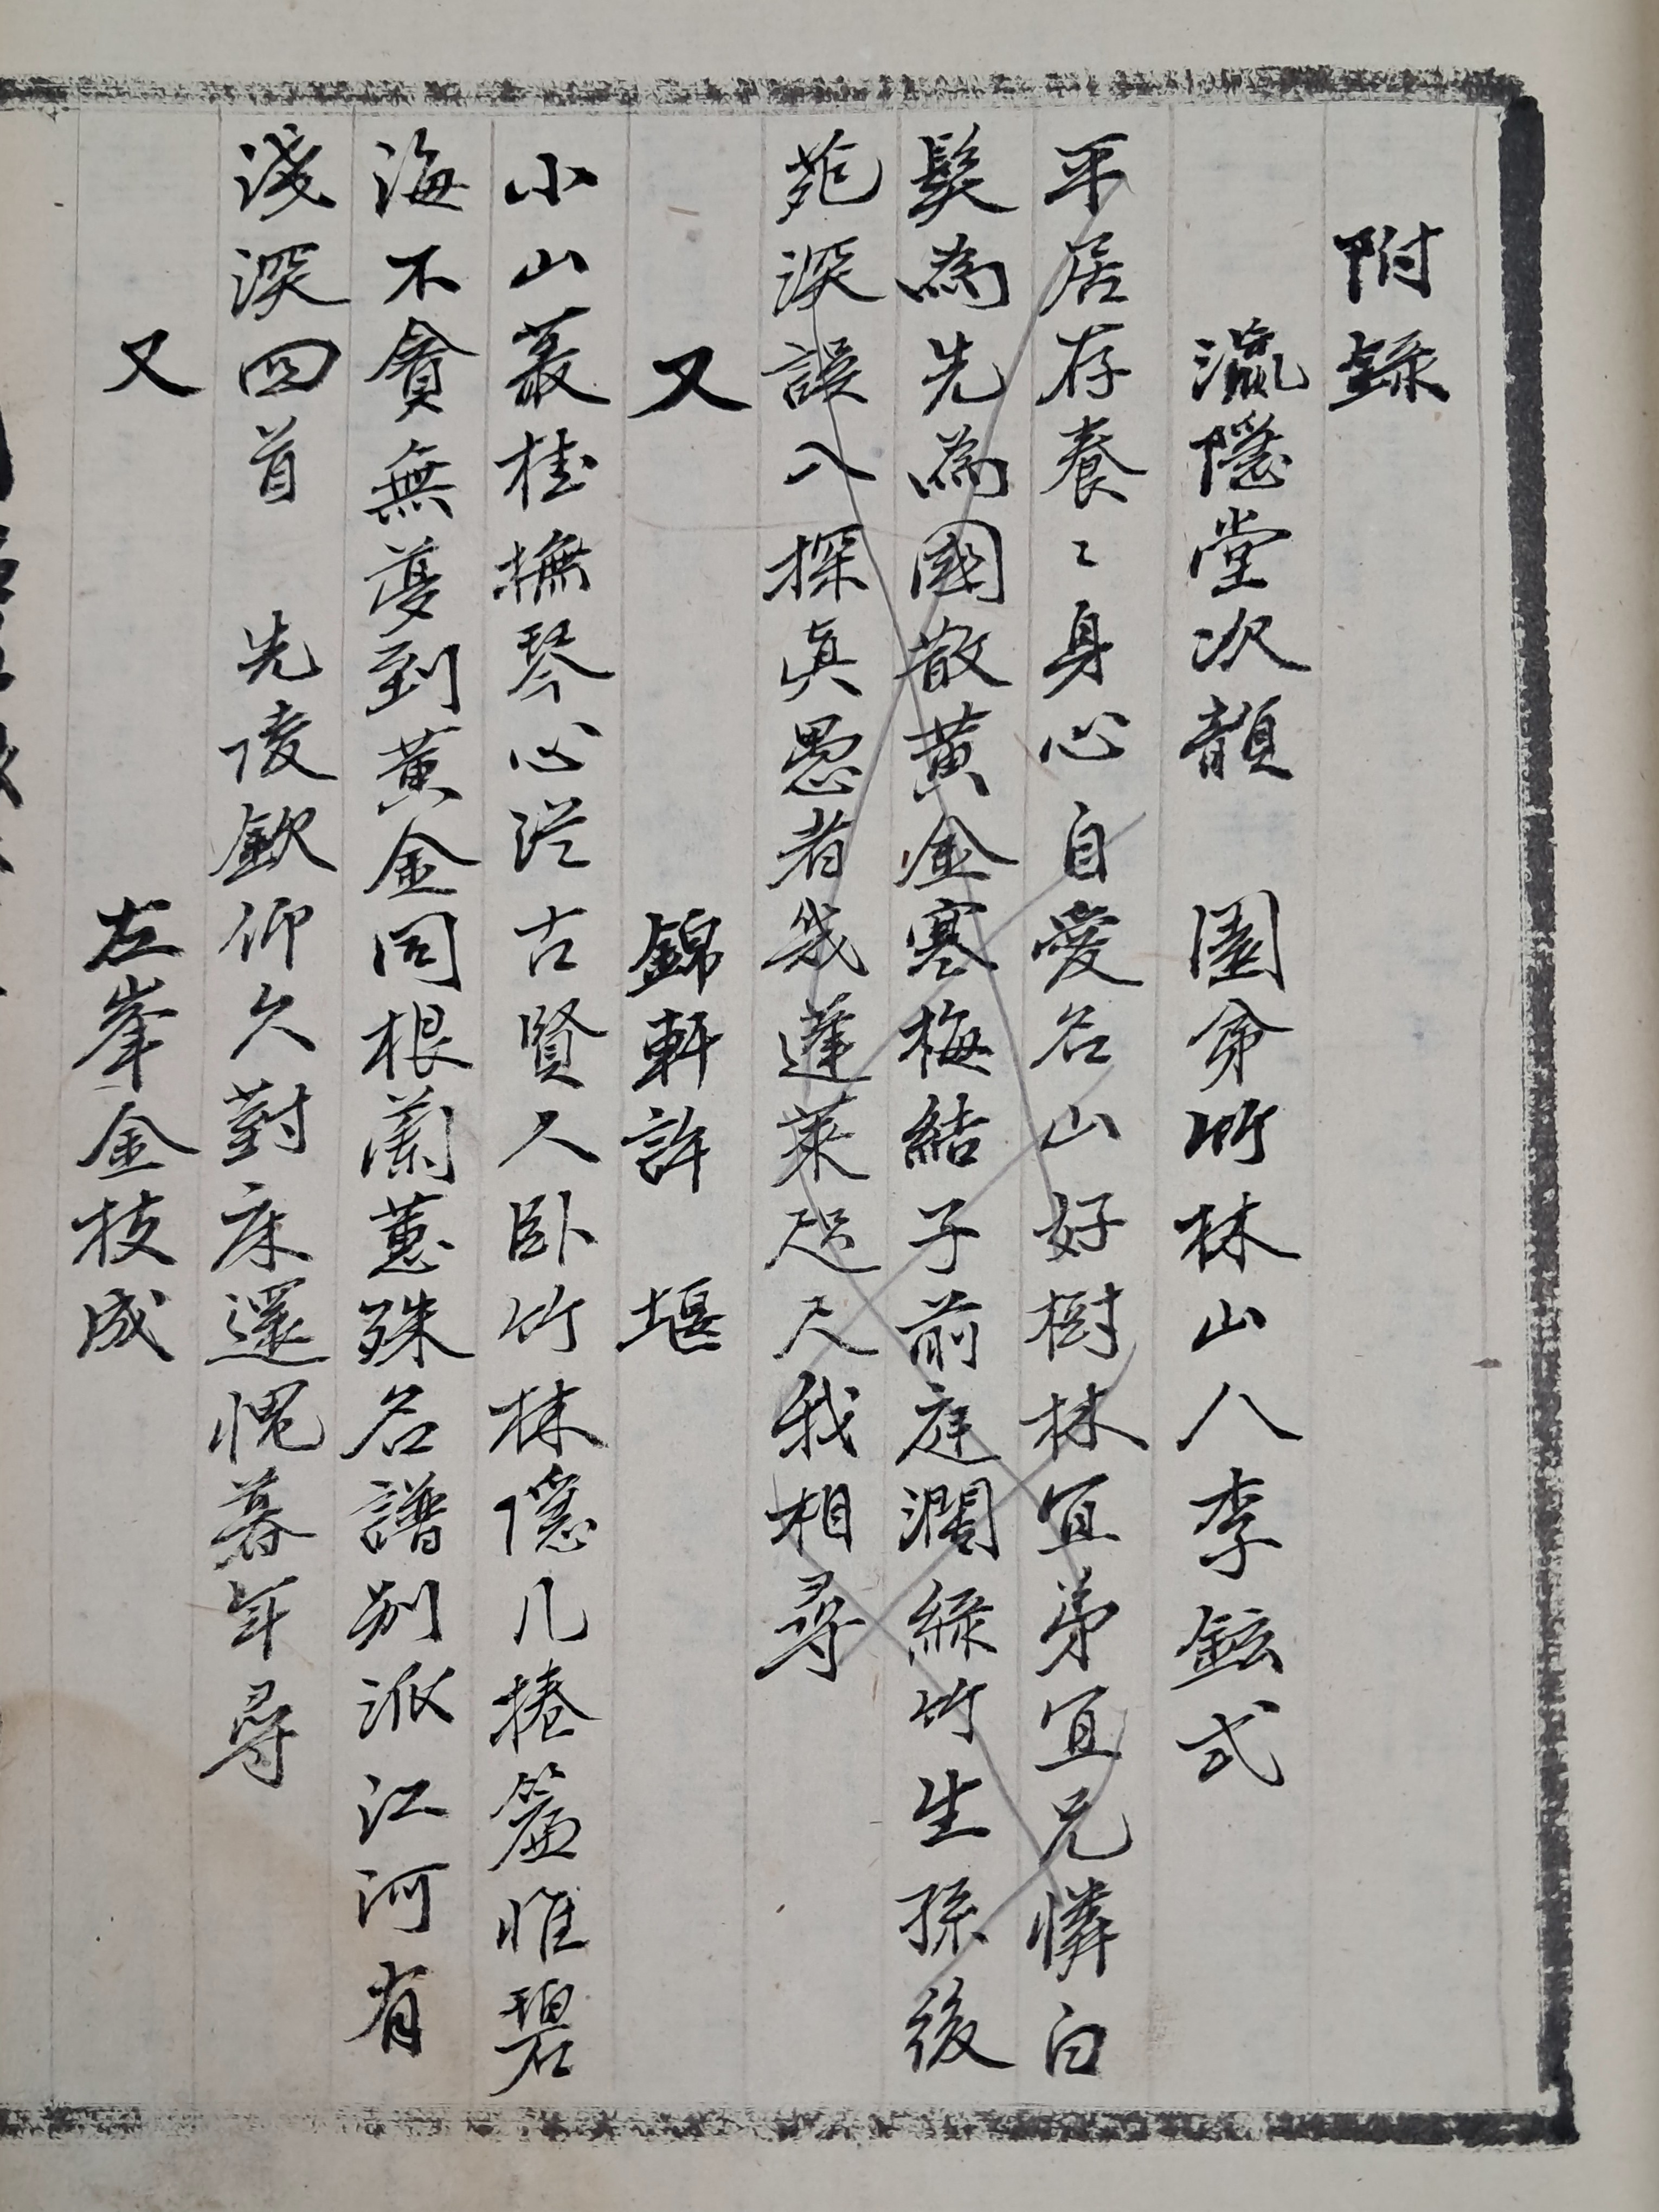 附錄
瀛隱堂次韻 竹林山人李鉉式
平居存養〻身心自愛名山好樹林宜弟宜兄憐白
髮為先為國散黃金寒梅結子前庭濶綠竹生孫後
苑深誤入探眞愚者幾蓬萊咫尺我相尋
又 錦軒許 堰
小山叢桂撫琴心從古賢人臥竹林隱几捲簾惟碧
海不貪無夢到黃金同根蘭蕙殊名譜別派江河有
淺深四首 先陵欽仰久對床還愧暮年尋
又 左峯金枝成